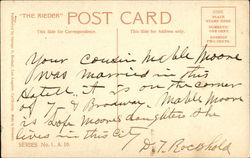 "THE RIEDER" POST CARD
This Side for Correspondence. This Side for Address only.
PLACE
STAMP HERE
DOMESTIC
ONE CENT
FOREIGN
TWO CENTS
Your Cousin Mable Moore
was married in this
Hotell. it is on the corner
of 7 & Brodway. Mable Moore
is Hope Moores daughter she
lives in this City
D. T. Rockhold
SERIES No. 1. A. 10.